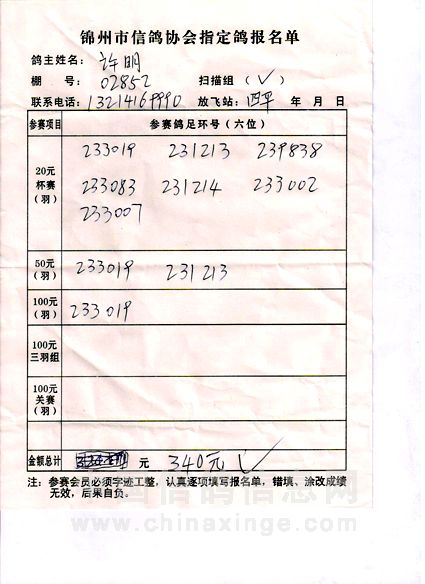 锦州市信鸽协会指定鸽报名单
鸽主姓名： 许明
棚 号： 02852 扫描组（✓）
联系电话： 13214169990 放飞站：四平 年 月 日
参赛项目 参赛鸽足环号（六位）
20元
杯赛
（羽）
233019 231213 239838
233083 231214 233002
233007
50元
（羽）
233019 231213
100元
（羽）
233019
100元
三羽组
100元
关赛
（羽）
金额总计 元 340元 ✓
注：参赛会员必须字迹工整，认真逐项填写报名单，错填、涂改成绩
无效，后果自负。
中国信鸽信息网
www.chinaxinge.com